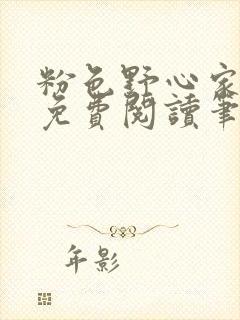 粉色野心家
免費閱讀筆
年影